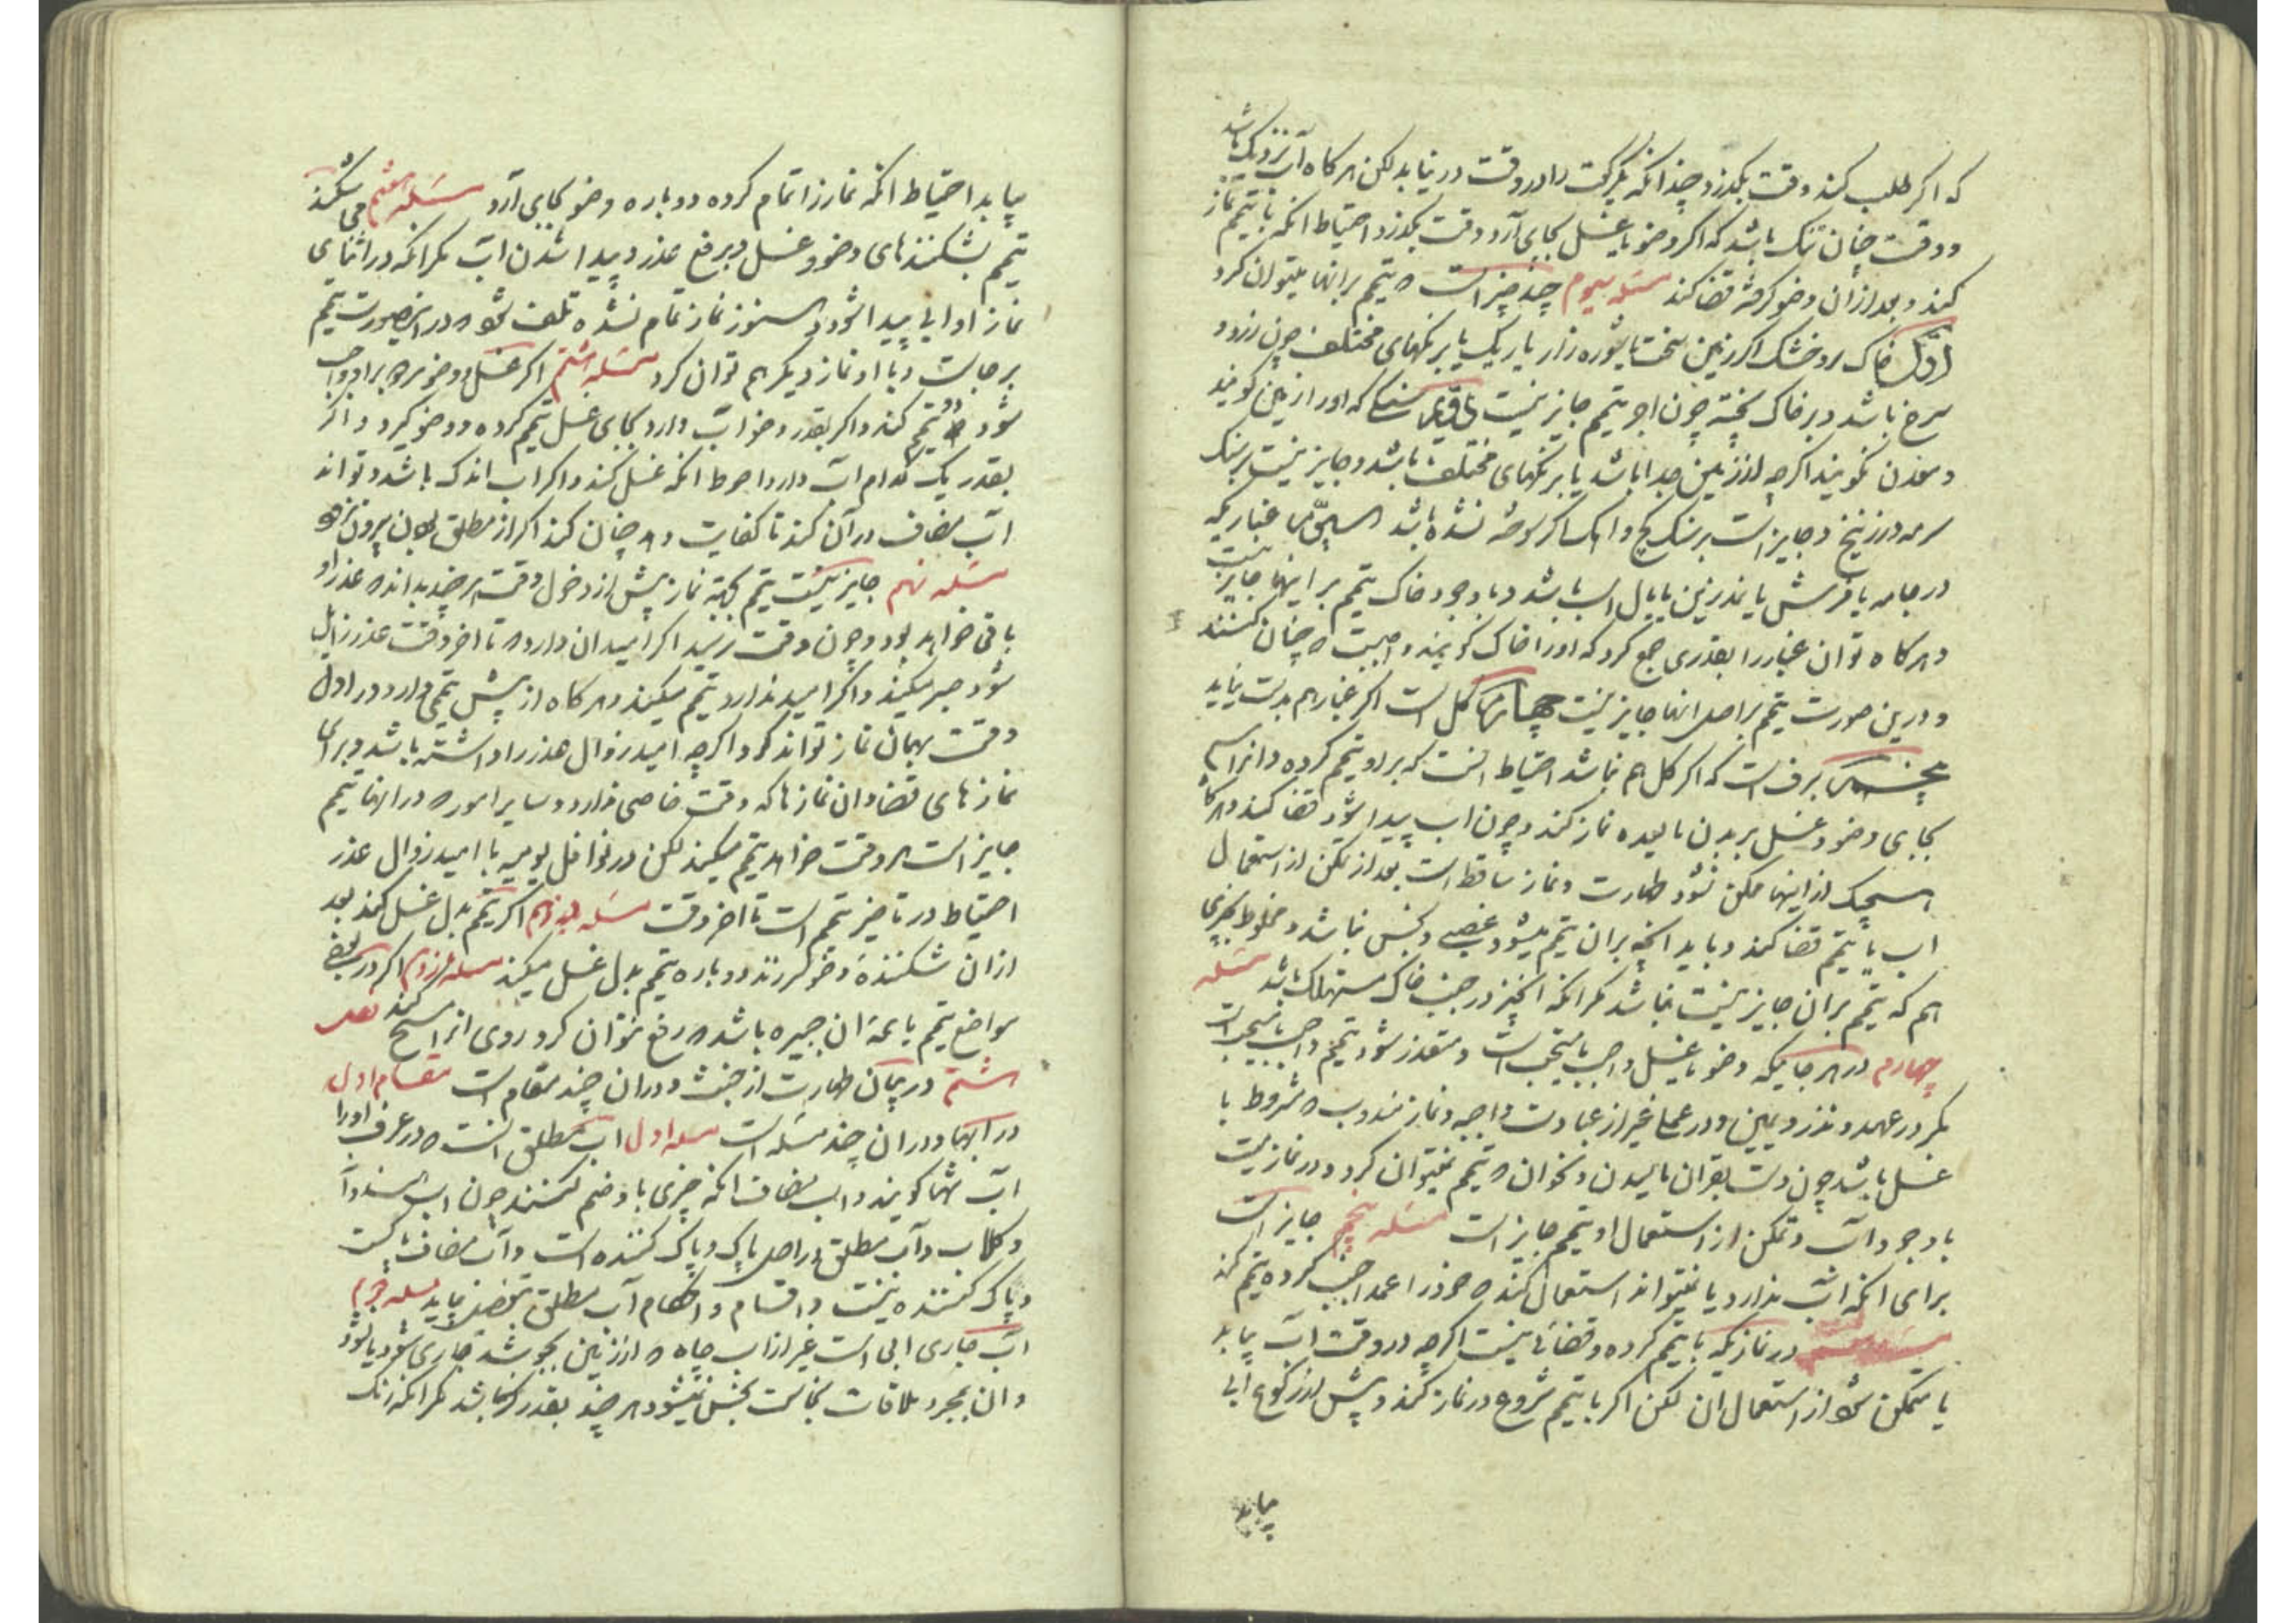 که اگر طلب کند وقت بگذرد چندانکه یکرکعت را در وقت در نیابد لکن هرکاه آب نزدیک باشد
و وقت چنان تنک باشد که اگر وضو یا غسل بجای آرد وقت بگذرد احتیاط انکه با تیمم نماز
کند و بعد از ان وضو گرفته قضا کند مسئله سیوم چند چیز است که تیمم بر انها میتوان کرد
اول خاک و خشک اگر زمین سخت یا شوره زار یا ریک یا برنکهای مختلف چون زرد و
سرخ باشد و بر خاک پخته چون اجر تیمم جایز نیست سنکی که او را زمین کویند
و معدن نکویند اگرچه از زمین جدا باشد یا برنکهای مختلف باشد و جایز نیست بر سنک
سرمه و زرنیخ و جایز است بر سنک کچ و اهک اگر سوخته نشده باشد سیوم غباریکه
در جامه یا فرش یا نمد زین یا یال اسب باشد و با وجود خاک تیمم بر اینها جایز نیست
و هرکاه توان غبار را بقدری جمع کرد که او را خاک کویند واجبست که چنان کنند
و درین صورت تیمم بر اصل انها جایز نیست چهارم کل است اگر غبار هم بدست نیاید
پنجم برف است که اگر کل هم نباشد احتیاط انست که بر او تیمم کرده و انرا
بجای وضو و غسل بر بدن مالیده نماز کند و چون اب پیدا شود قضا کند و هرکاه
هیچیک از اینها ممکن نشود طهارت و نماز ساقط است بعد از تمکن از استعمال
اب یا تیمم قضا کند و باید انچه بر ان تیمم میشود غصبی و نجس نباشد و مخلوط بچیزی
هم که تیمم بر ان جایز نیست نباشد مکر انکه انچیز در جنب خاک مستهلک باشد مسئله
چهارم در هر جایکه وضو یا غسل واجب یا مستحب است و متعذر شود تیمم واجب یا مستحب است
مکر در عهد و نذر و یمین و در عمل غیر از عبادت واجبه و نماز مندوب که مشروط با
غسل باشد چون دست بقران مالیدن و نخوان که تیمم نمیتوان کرد و در نماز میت
با وجود آب و تمکن از استعمال او تیمم جایز است مسئله پنجم جایز است
برای انکه آب ندارد یا نمیتواند استعمال کند که خود را عمدا جنب کرده تیمم کند
در نمازیکه با تیمم کرده و قضائی نیست اگرچه در وقت آب بیابد
یا متمکن شود از استعمال ان لکن اگر با تیمم شروع در نماز کند و پیش از رکوع آبی
بیابد
بیابد احتیاط انکه نماز را تمام کرده دوباره وضو بجای آرد مسئله هفتم می شکند
تیمم بشکننده‌های وضو و غسل و برفع عذر و پیدا شدن آب مکر انکه در اثنای
نماز او آبی پیدا شود و هنوز نماز تمام نشده تلف شود که در اینصورت تیمم
بر جاست و با او نماز دیکر هم توان کرد مسئله هشتم اگر غسل و وضو هر دو بر او واجب
شود دو تیمم کند و اگر بقدر وضو آب دارد بجای غسل تیمم کرده و وضو گیرد و اگر
بقدر یک کدام آب دارد احوط انکه غسل کند و اگر اب اندک باشد و تواند
آب مضاف در آن کند تا کفایت دهد چنان کند اگر از مطلق بودن بیرون نرود
مسئله نهم جایز نیست تیمم بجهة نماز پیش از دخول وقت هر چند بداند که عذر او
باقی خواهد بود و چون وقت رسید اگر امید ان دارد که تا اخر وقت عذر زایل
شود صبر میکند و اگر امید ندارد تیمم میکند و هرکاه از پیش تیممی دارد در اول
وقت بهمان نماز تواند کرد اگرچه امید زوال عذر را داشته باشد و برای
نمازهای قضا و ان نمازها که وقت خاصی ندارد و سایر امور که در انها تیمم
جایز است هر وقت خواهد تیمم میکند لکن در نوافل یومیه با امید زوال عذر
احتیاط در تاخیر تیمم است تا اخر وقت مسئله یازدهم اگر تیمم بدل غسل کند بعد
از ان شکننده وضو سر زند دوباره تیمم بدل غسل میکند مسئله دوازدهم اگر در بعضی
مواضع تیمم یا همه ان جبیره باشد که رفع نتوان کرد روی انرا مسح کند فصل
هشتم در بیان طهارت از خبث و در ان چند مقام است مقام اول
در ابها و در ان چند مسئله است مسئله اول اب مطلق انست که در عرف او را
آب تنها کویند و اب مضاف انکه چیزی با و ضم کنند چون اب هندوانه
و کلاب و آب مطلق در اصل پاک و پاک کننده است و آب مضاف پاکست
و پاک کننده نیست و اقسام و احکام آب مطلق مسئله دوم
آب جاری ابی است غیر از اب چاه که از زمین بجوشد جاری شود یا نشود
و ان بمجرد ملاقات نجاست نجس نمیشود هر چند بقدر کر نباشد مکر انکه رنک